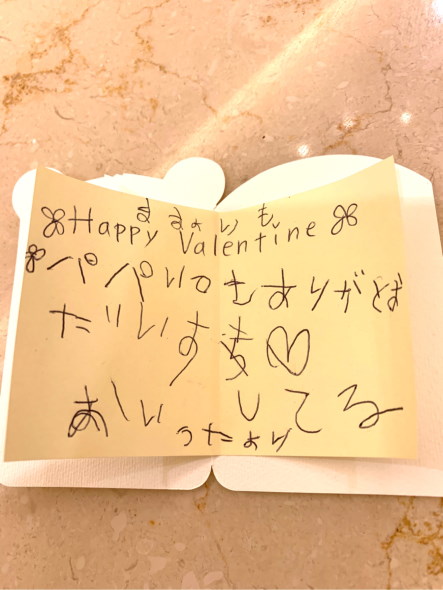 ままよりも
Happy Valentine
パパいつもありがとお
だいすき♡
あいしてる
うたより